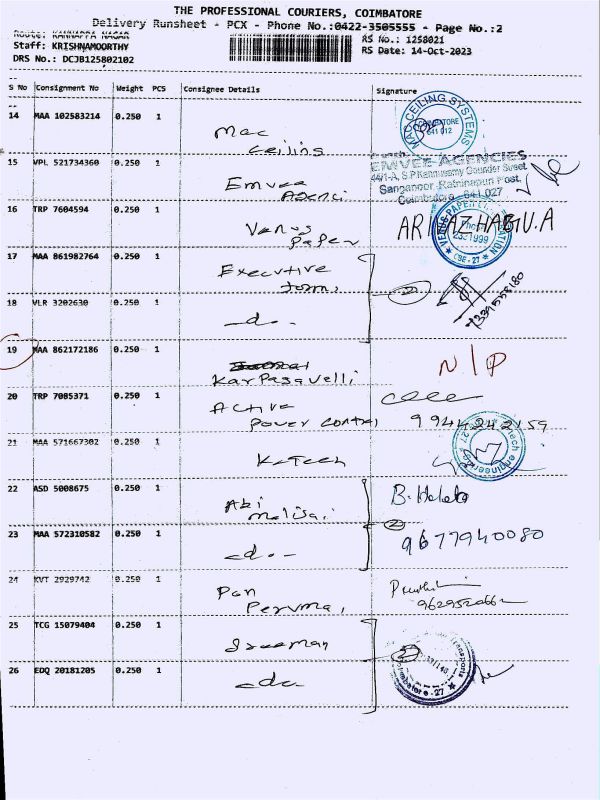 THE PROFESSIONAL COURIERS, COIMBATORE
Delivery Runsheet - PCX - Phone No.:0422-3505555 - Page No.:2
Route: KANNAPPA NAGAR RS No.: 1258021
Staff: KRISHNAMOORTHY RS Date: 14-Oct-2023
DRS No.: DCJB125802102
S No Consignment No Weight PCS Consignee Details Signature
14 MAA 102583214 0.250 1 Mac
Ceilings
MAC CEILING SYSTEMS
COIMBATORE
641 012
15 VPL 521734360 0.250 1 Emvee
Agenci
EMVEE AGENCIES
44/1-A, S.P. Kannusamy Gounder Street
Sanganoor-Ratnapuri Post,
Coimbatore - 641 027
16 TRP 7604594 0.250 1 Venus
Paper
VENUS PAPER
CBE - 27
17 MAA 861982764 0.250 1 Executive
2
18 VLR 3202630 0.250 1 -do-
19 MAA 862172186 0.250 1
Karpasavelli
N/P
20 TRP 7085371 0.250 1 Active
Power Control
9944242159
21 MAA 571667302 0.250 1 K-Tech
22 ASD 5008675 0.250 1 Abi
2
23 MAA 572310582 0.250 1 -do-
9677940080
24 KVT 2929742 0.250 1 Pon
Perumal
25 TCG 15079404 0.250 1 Sreeman
2
26 EDQ 20181205 0.250 1 -do-
Coimbatore - 27